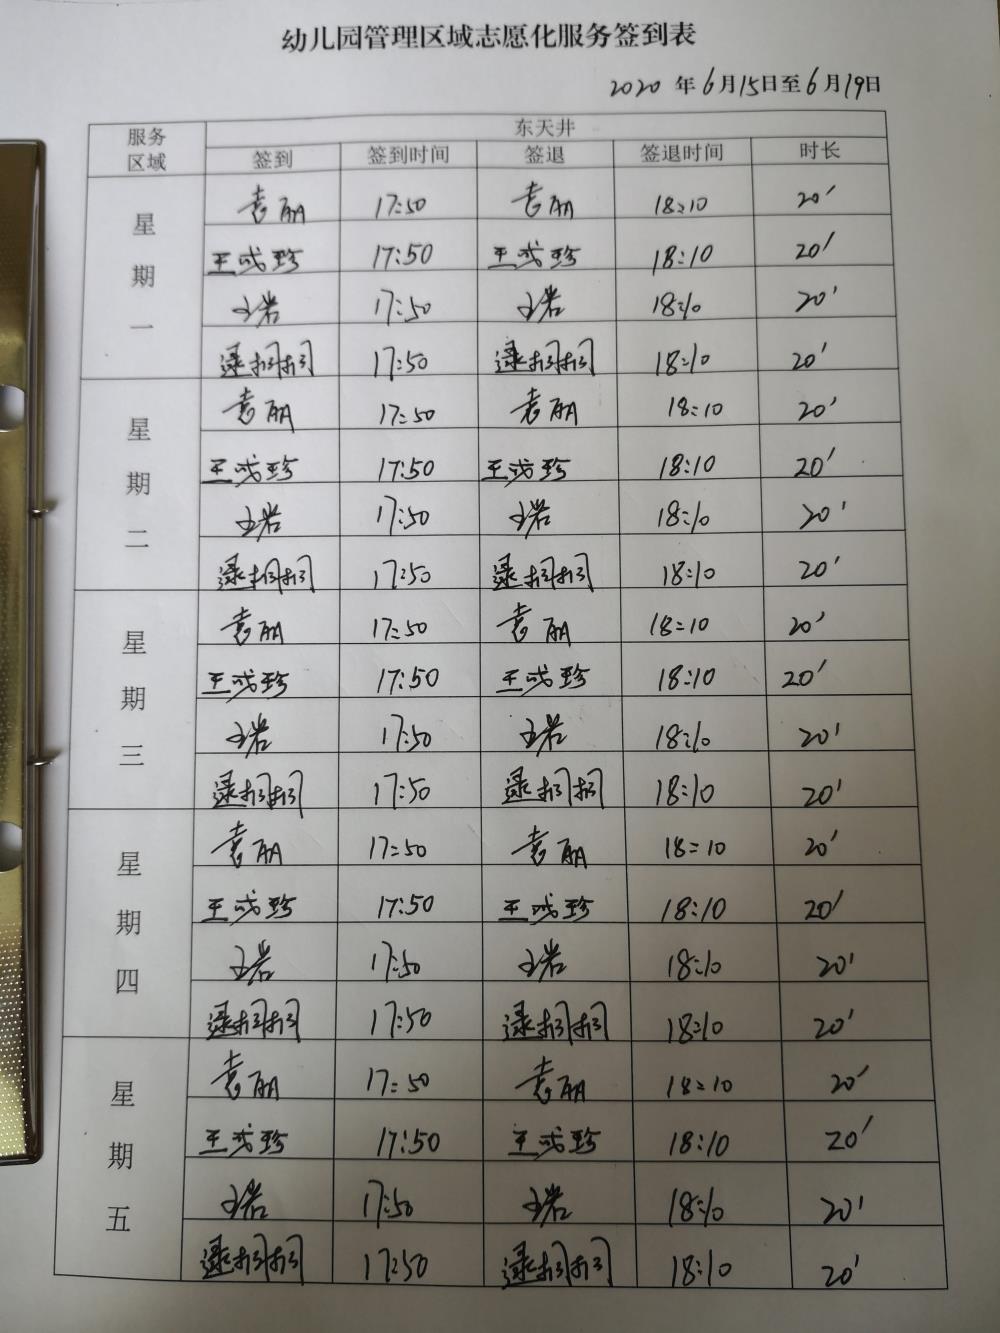 幼儿园管理区域志愿化服务签到表
2020 年 6月15日至6月19日
服务区域 东天井
签到 签到时间 签退 签退时间 时长
星期一
袁丽 17:50 袁丽 18:10 20'
17:50 18:10 20'
王岩 17:50 王岩 18:10 20'
17:50 18:10 20'
星期二
袁丽 17:50 袁丽 18:10 20'
17:50 18:10 20'
王岩 17:50 王岩 18:10 20'
17:50 18:10 20'
星期三
袁丽 17:50 袁丽 18:10 20'
17:50 18:10 20'
王岩 17:50 王岩 18:10 20'
17:50 18:10 20'
星期四
袁丽 17:50 袁丽 18:10 20'
17:50 18:10 20'
王岩 17:50 王岩 18:10 20'
17:50 18:10 20'
星期五
袁丽 17:50 袁丽 18:10 20'
17:50 18:10 20'
王岩 17:50 王岩 18:10 20'
17:50 18:10 20'